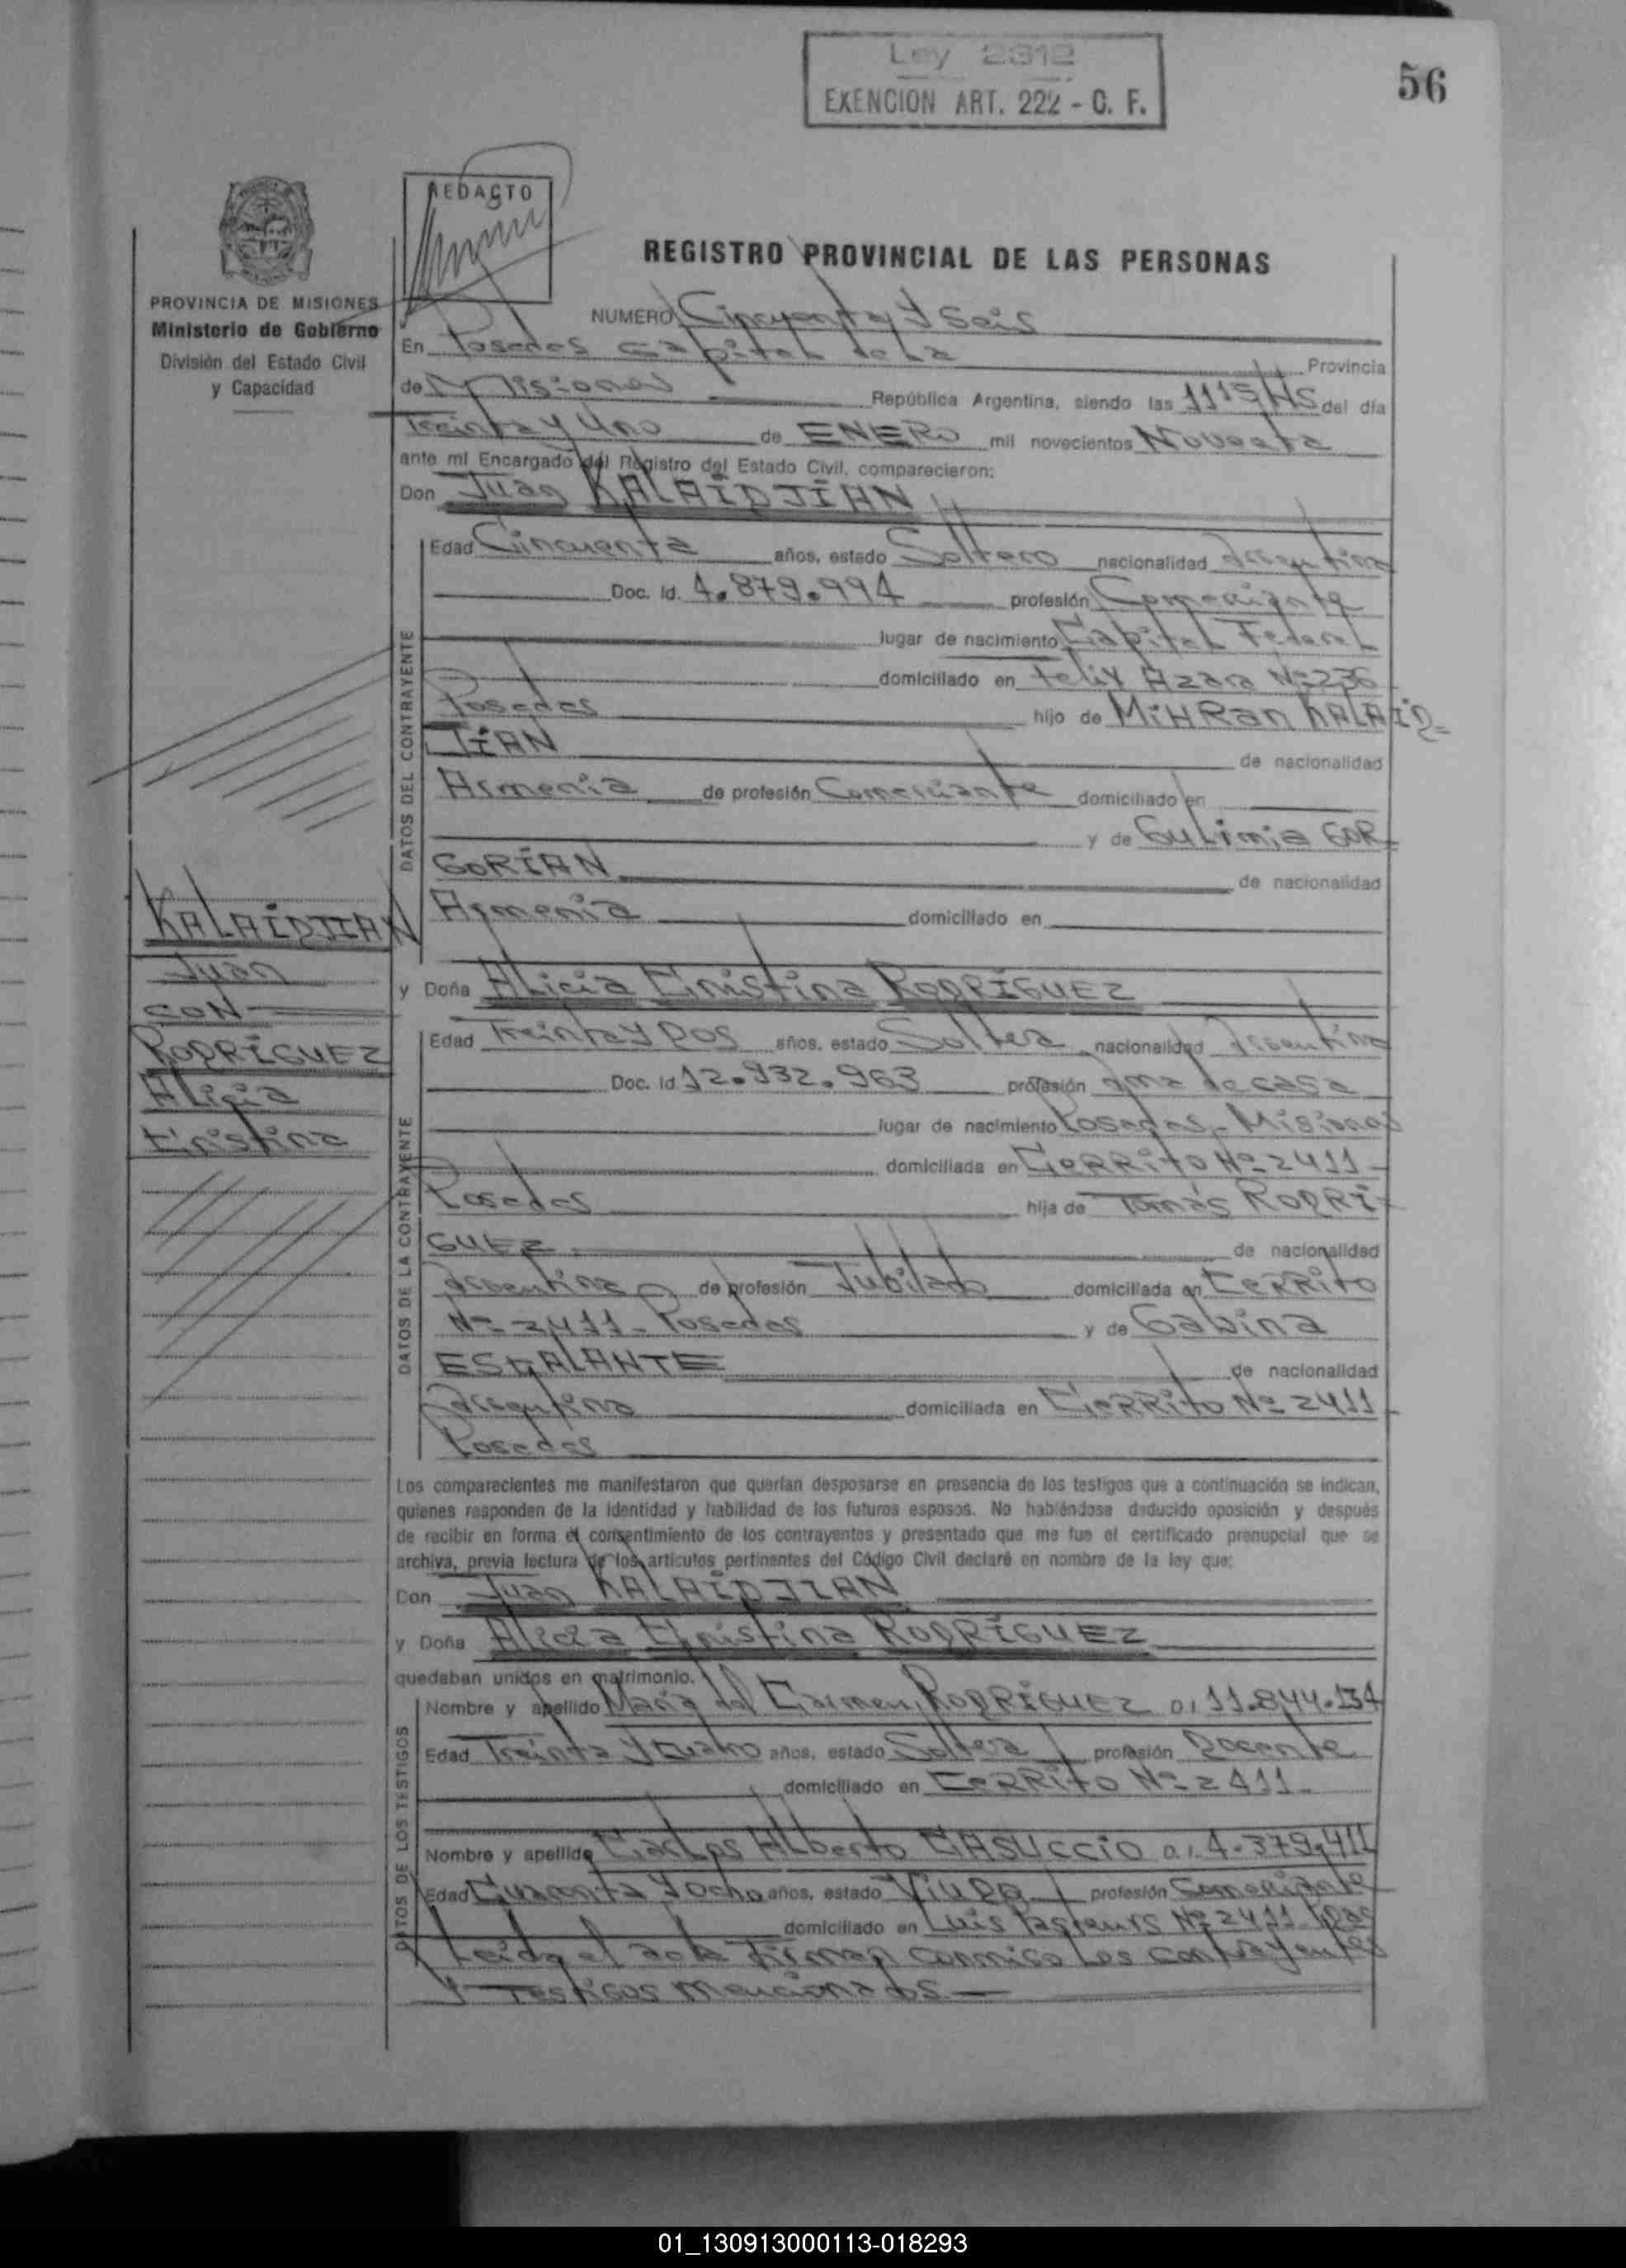 Ley 2312
EXENCION ART. 222 - C. F.
56
REDACTO
REGISTRO PROVINCIAL DE LAS PERSONAS
PROVINCIA DE MISIONES
Ministerio de Gobierno
División del Estado Civil
y Capacidad
NUMERO Cincuenta y Seis
En Posadas Capital de La Provincia
de Misiones República Argentina, siendo las 11 15 HS del día
Treinta y Uno de ENERO mil novecientos Noventa
ante mi Encargado del Registro del Estado Civil, comparecieron:
Don Juan KALAIDJIAN
DATOS DEL CONTRAYENTE
Edad Cincuenta años, estado Soltero nacionalidad Argentina
Doc. Id. 4.879.994 profesión Comerciante
lugar de nacimiento Capital Federal
domiciliado en Felix Azara Nº 236
Posadas hijo de MiHRan KALAID=
JIAN de nacionalidad
Armenia de profesión Comerciante domiciliado en
y de Gulimia GOR=
GORIAN de nacionalidad
Armenia domiciliado en
KALAIDJIAN
Juan
CON
RODRIGUEZ
Alicia
Cristina
y Doña Alicia Cristina RODRIGUEZ
DATOS DE LA CONTRAYENTE
Edad Treinta y Dos años, estado Soltera nacionalidad Argentina
Doc. Id 12.932.963 profesión ama de casa
lugar de nacimiento Posadas - Misiones
domiciliada en CeRRito Nº 2411-
Posadas hija de Tomás RODRI=
GUEZ de nacionalidad
Argentina de profesión Jubilado domiciliada en CeRRito
Nº 2411- Posadas y de Gabina
ESCALANTE de nacionalidad
Argentina domiciliada en CeRRito Nº 2411-
Posadas
Los comparecientes me manifestaron que querían desposarse en presencia de los testigos que a continuación se indican,
quienes responden de la identidad y habilidad de los futuros esposos. No habiéndose deducido oposición y después
de recibir en forma el consentimiento de los contrayentes y presentado que me fue el certificado prenupcial que se
archiva, previa lectura de los artículos pertinentes del Código Civil declaré en nombre de la ley que:
Don Juan KALAIDJIAN
y Doña Alicia Cristina RODRIGUEZ
quedaban unidos en matrimonio.
DATOS DE LOS TESTIGOS
Nombre y apellido Maria del Carmen RODRIGUEZ 11.844.134
Edad Treinta y Cuatro años, estado Soltera profesión Docente
domiciliado en CeRRito Nº 2411-
Nombre y apellido Carlos Alberto CASUCCIO 4.379.411
Edad Cuarenta y ocho años, estado Viudo profesión Comerciante
domiciliado en Luis Nº 2411
Leida el acta firman conmigo los contrayentes
y testigos mencionados.-
01_130913000113-018293